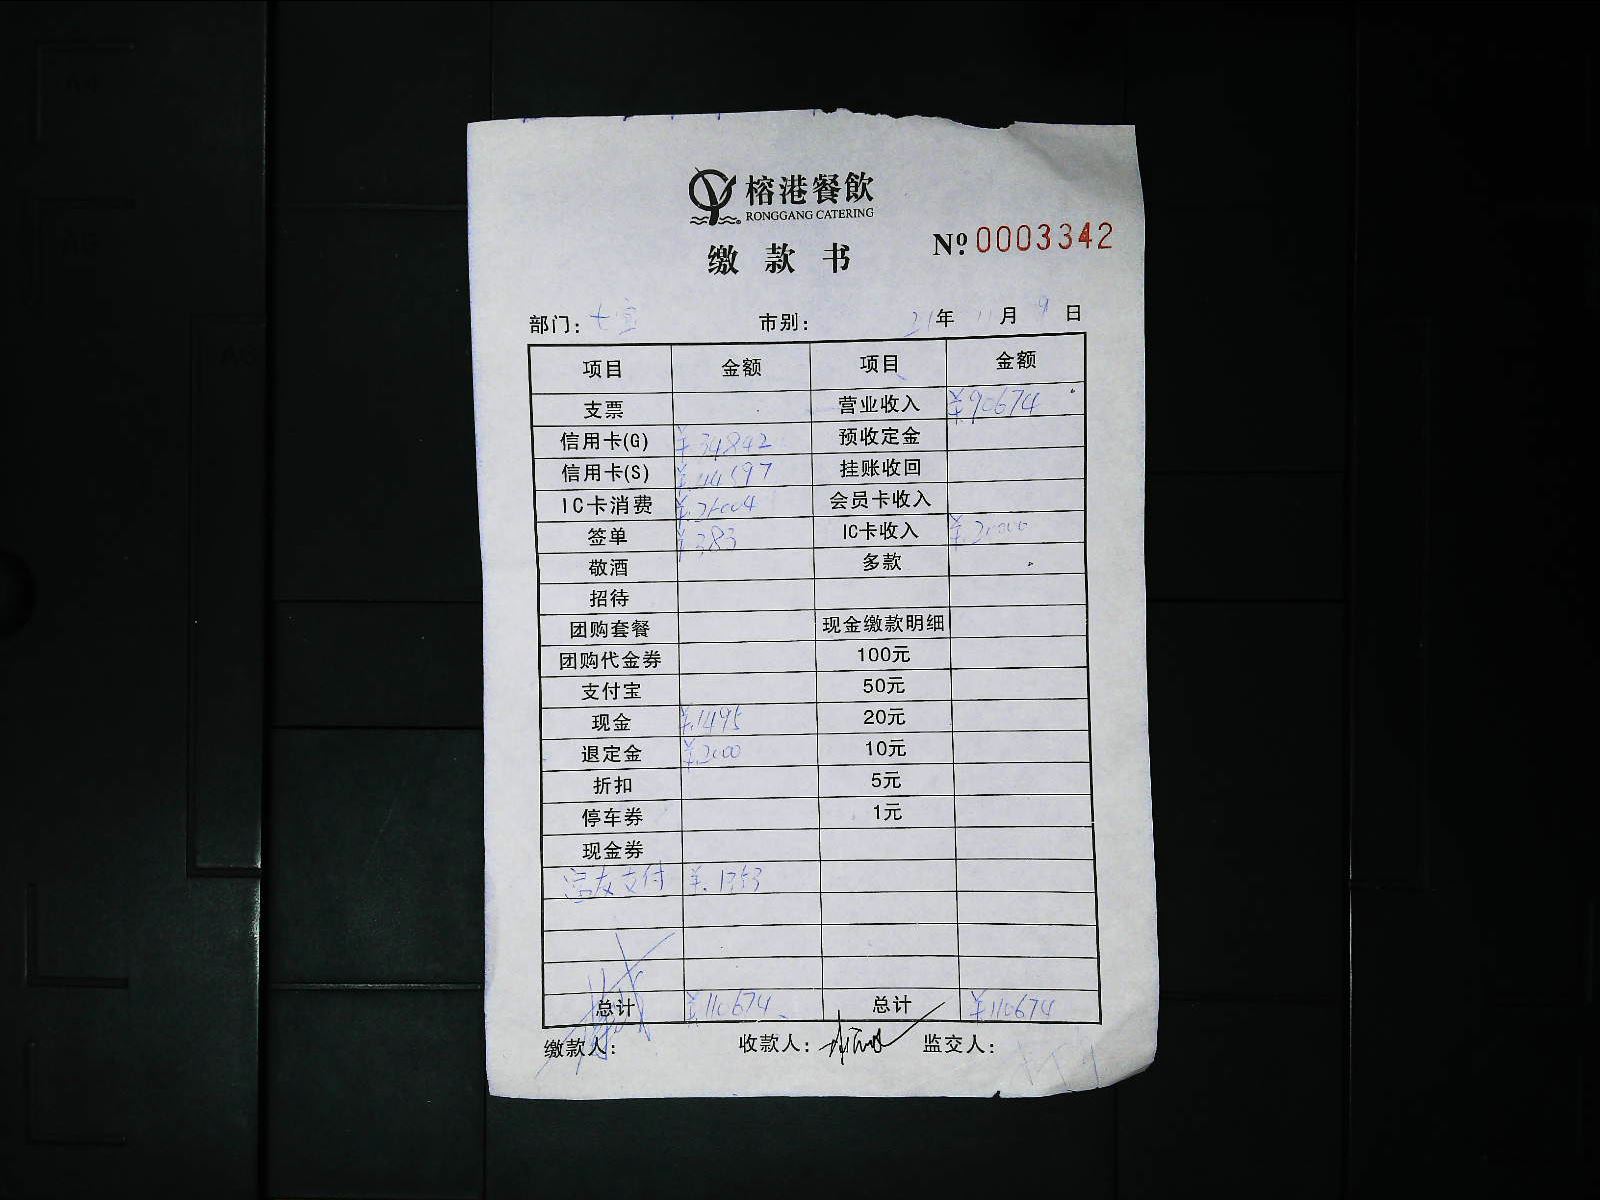 榕港餐飲
RONGGANG CATERING
缴款书
Nº 0003342
部门: 七宝 市别: 21年 11月 9日
项目 金额 项目 金额
支票 营业收入 ¥90674
信用卡(G) ¥34842 预收定金
信用卡(S) ¥44597 挂账收回
IC卡消费 ¥26004 会员卡收入
签单 ¥383 IC卡收入 ¥20000
敬酒 多款
招待
团购套餐 现金缴款明细
团购代金券 100元
支付宝 50元
现金 ¥1495 20元
退定金 ¥2000 10元
折扣 5元
停车券 1元
现金券
富友支付 ¥1353
总计 ¥110674 总计 ¥110674
缴款人: 收款人: 监交人: